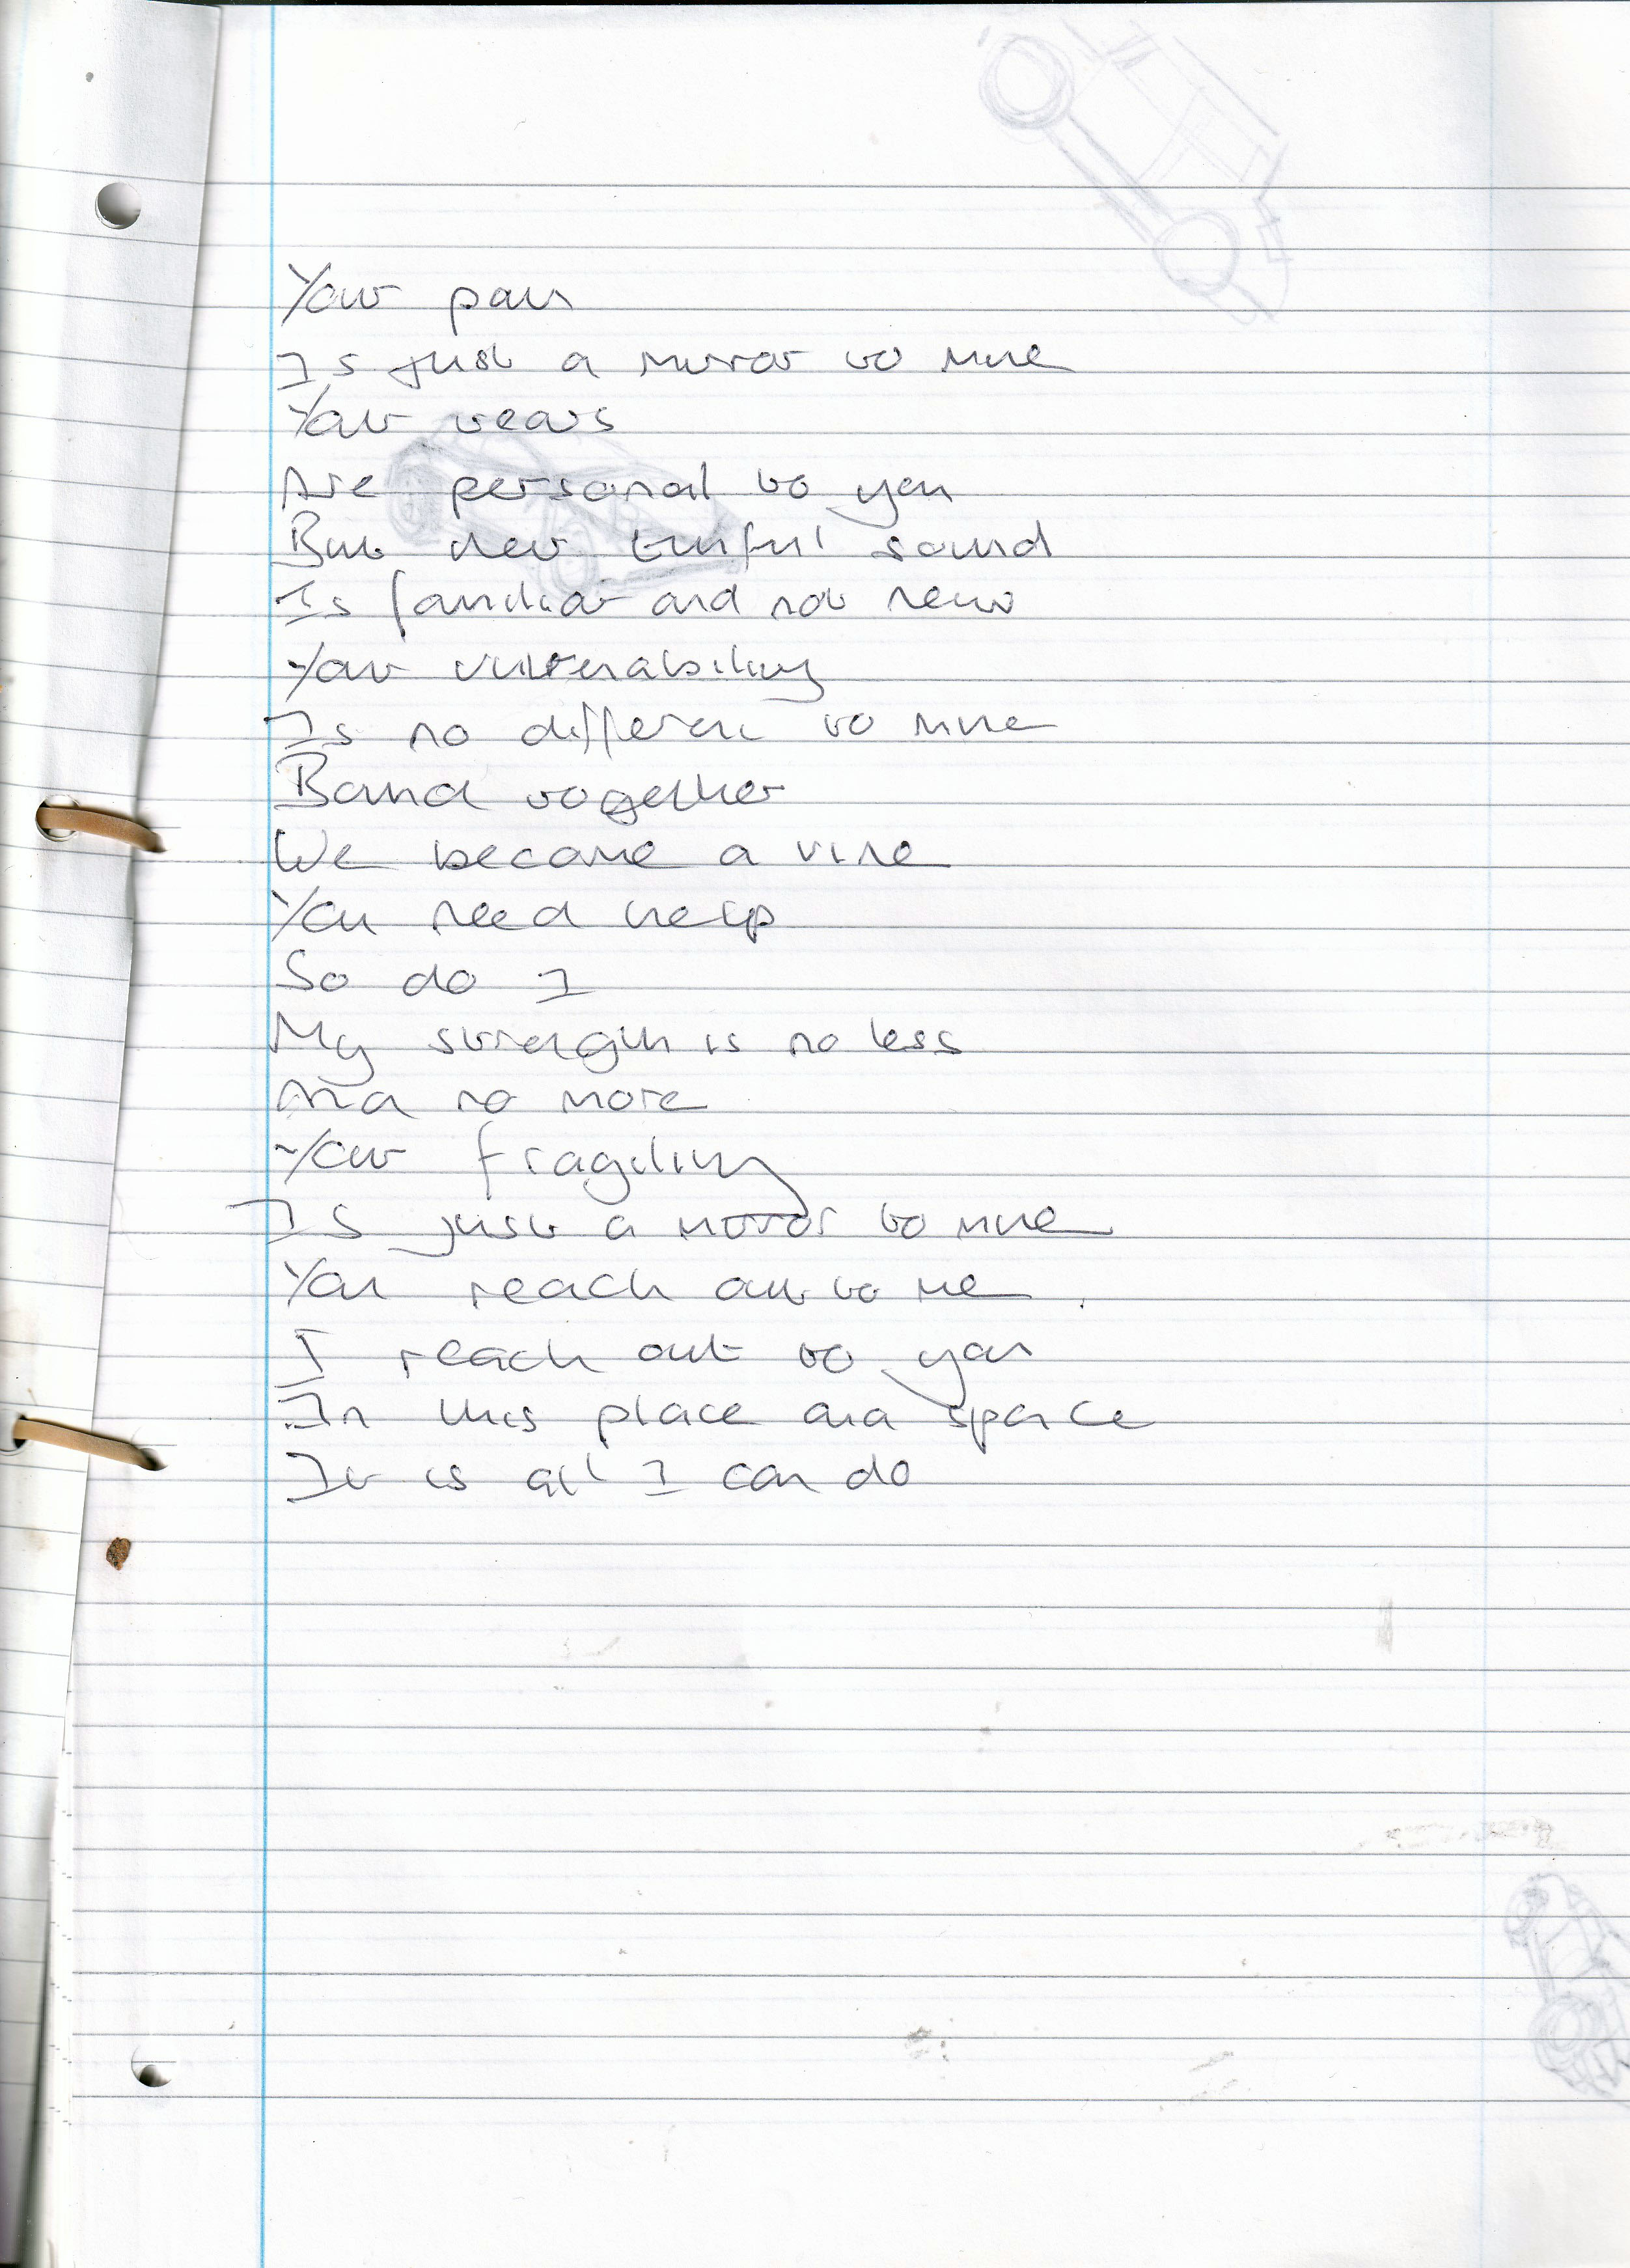 Your pain
Is just a mirror to mine
Your tears
Are personal to you
But their sound
Is familiar and not new
Your vulnerability
Is no different to mine
Band together
We become a vine
You need help
So do I
My strength is no less
And no more
Your fragility
Is just a mirror to mine
You reach out to me
I reach out to you
In this place and space
It is all I can do